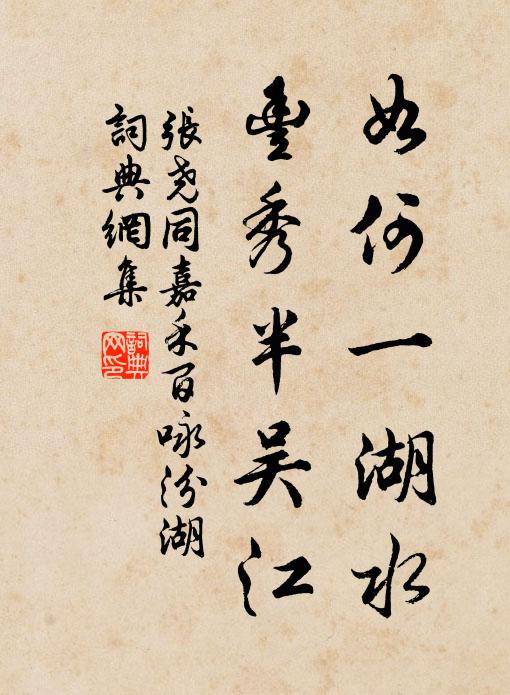 如何一湖水
豊秀半吴江
張尭同嘉禾百咏汾湖
詞典網集
詞典网印